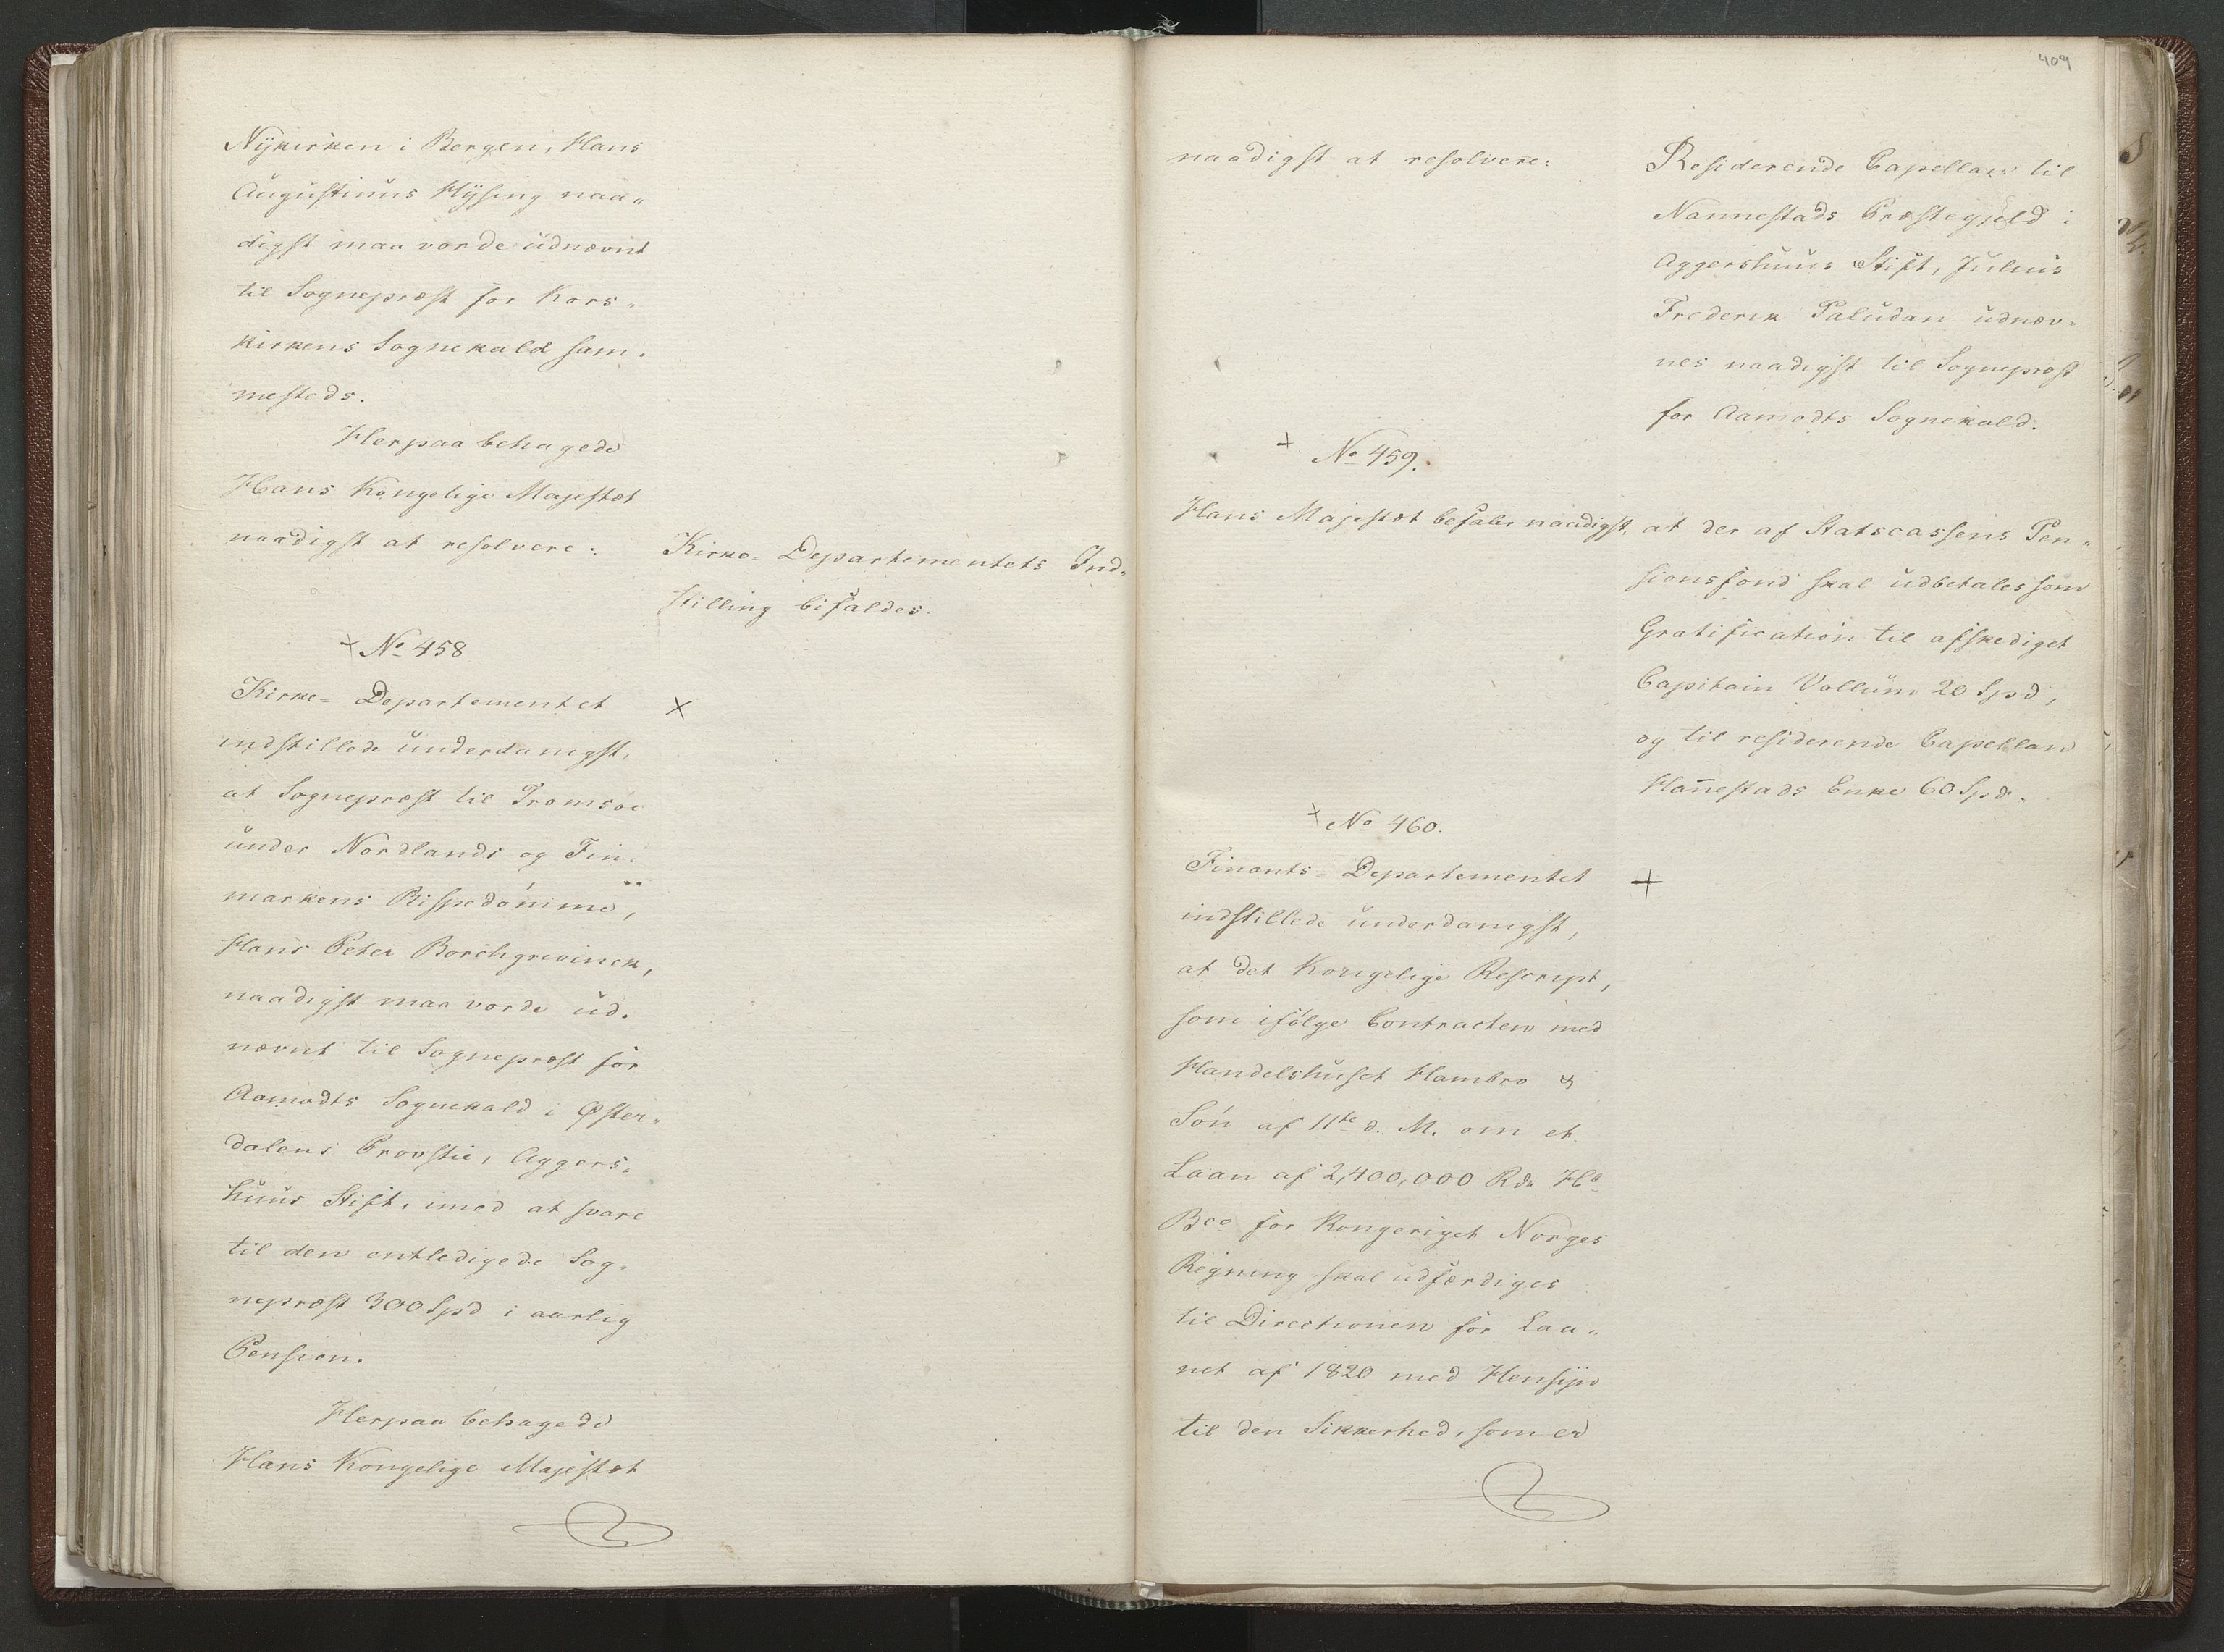 Nÿkirken i Bergen, Hans
Augustinus Hÿsing naa-
digst maa vorde udnævnt
til Sognepræst for Kors-
kirkens Sognekald sam-
mesteds.
Herpaa behagede
Hans Kongelige Majestæt
naadigst at resolvere:
Kirke-Departementets Ind-
stilling bifaldes.
+ No 458
Kirke-Departementet
×
indstillede underdanigst,
at Sognepræst til Tromsøe
under Nordlands og Fin-
markens Bispedømme,
Hans Peter Borchgrevinck,
naadigst maa vorde ud-
nævnt til Sognepræst for
Aamodts Sognekald i Øster-
dalens Provstie, Aggers-
huus Stift, imod at svare
til den entledigede Sog-
nepræst 300 Spd i aarlig
Pension.
Herpaa behagede
Hans Kongelige Majestæt
409
naadigst at resolvere:
Residerende Capellan til
Nannestads Præstegjeld i
Aggershuus Stift, Julius
Frederik Paludan udnæv-
nes naadigst til Sognepræst
for Aamodts Sognekald.
+ No 459.
Hans Majestæt befaler naadigst, at der af Statscassens Pen-
sionsfond skal udbetales som
Gratification til afskediget
Capitain Vollum 20 Spd,
og til residerende Capellan
Han̄estads Enke 60 Spd.
+ No 460.
Finants-Departementet
+
indstillede underdanigst,
at det Kongelige Rescript,
som ifølge Contracten med
Handelshuset Hambro &
Søn af 11te d. M. om et
Laan af 2,400,000 Rdr Hb
Bco for Kongeriget Norges
Regning skal udfærdiges
til Directionen for Laa-
net af 1820 med Hensÿn
til den Sikkerhed, som er